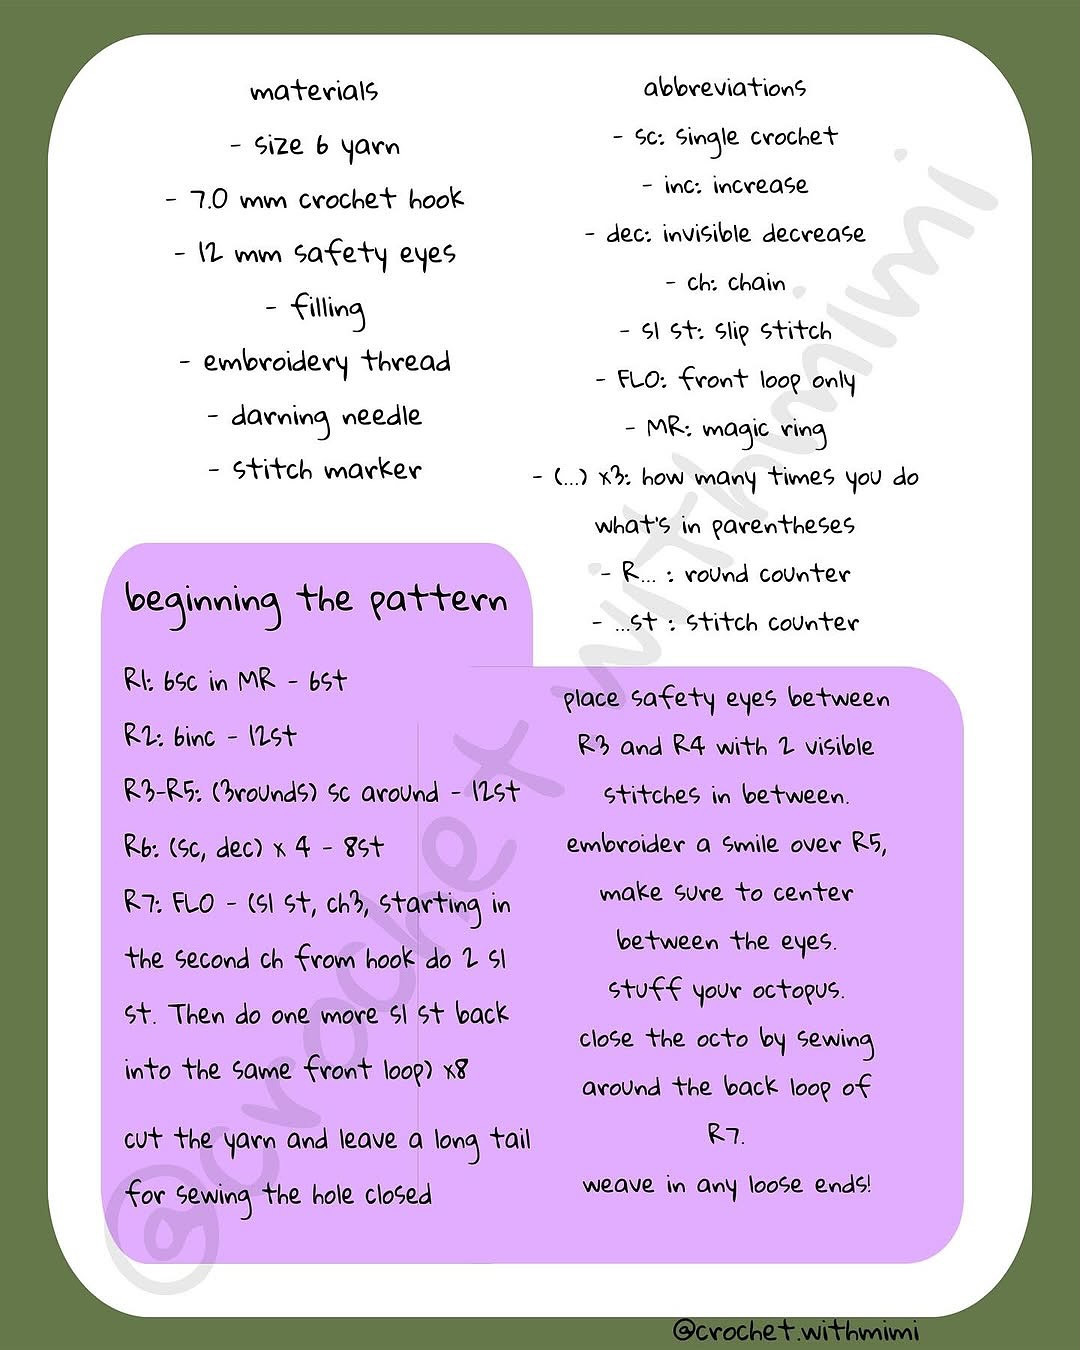 materials
- size 6 yarn
- 7.0 mm crochet hook
- 12 mm safety eyes
- filling
- embroidery thread
- darning needle
- stitch marker
abbreviations
- sc: single crochet
- inc: increase
- dec: invisible decrease
- ch: chain
- sl st: slip stitch
- FLO: front loop only
- MR: magic ring
- (...) x3: how many times you do
what's in parentheses
- R... : round counter
- ...st : stitch counter
beginning the pattern
R1: 6sc in MR - 6st
R2: 6inc - 12st
R3-R5: (3rounds) sc around - 12st
R6: (sc, dec) x 4 - 8st
R7: FLO - (sl st, ch3, starting in
the second ch from hook do 2 sl
st. Then do one more sl st back
into the same front loop) x8
cut the yarn and leave a long tail
for sewing the hole closed
place safety eyes between
R3 and R4 with 2 visible
stitches in between.
embroider a smile over R5,
make sure to center
between the eyes.
stuff your octopus.
close the octo by sewing
around the back loop of
R7.
weave in any loose ends!
@crochet.withmimi
@crochet.withmimi